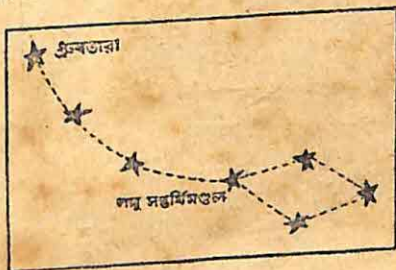 ধ্রুবতারা
লঘু সপ্তর্ষিমণ্ডল